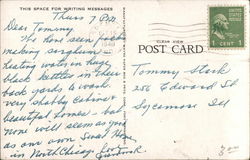 THIS SPACE FOR WRITING MESSAGES
Thurs 7 P.M.
Dear Tommy
We have seen folks
making sorghum -
heating water in huge
black kettles in their
back yards to wash.
very shabby cabins
beautiful homes - but
none will seem as good
as our own Sweet Home
in North Chicago. Love
1949
CLEAR VIEW
POST CARD
1 CENT 1
Tommy Stark
256 Edward St
Sycamore Ill